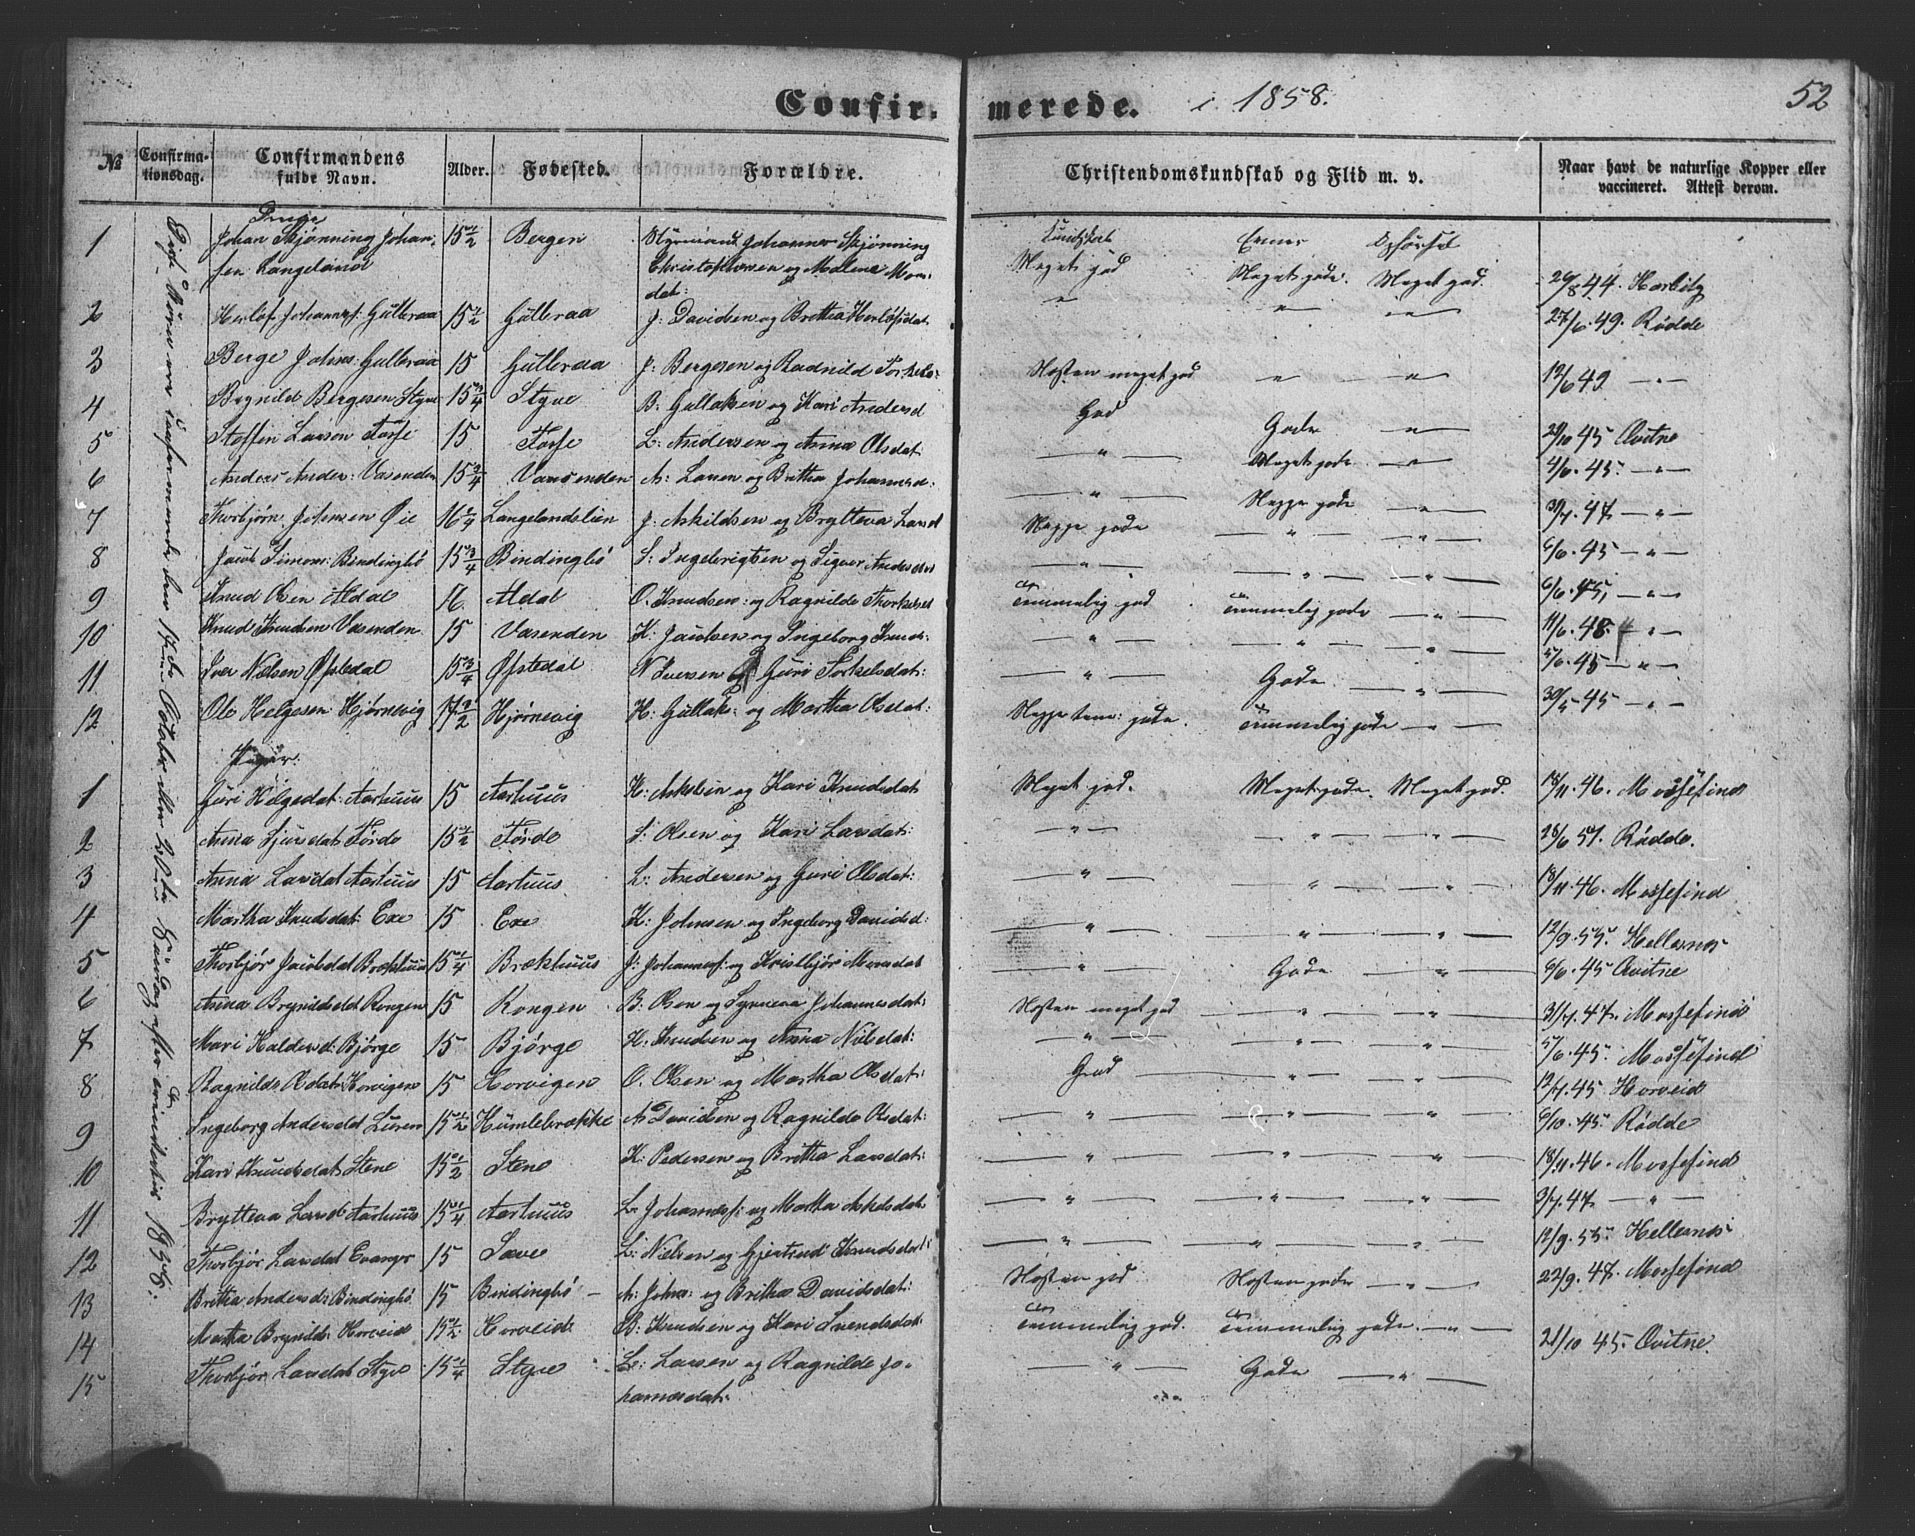 Confir. merede. i 1858. 52
№ Confirmationsdag. Confirmandens fulde Navn. Alder. Fødested. Forældre. Christendomskundskab og Flid m. v. Naar havt de naturlige Kopper eller vaccineret. Attest derom.
Drenge
Kundskab Evner Opførsel
1 Johan Skjønning Johan- 15 1/2 Bergen Styrmand Johannes Skjønning
sen Langeland Christophersen og Malene Mon- Meget god Meget gode. Meget god. 26/8 44. Herbitz
dat:
2 Herlof Johannes: Gulleraa 15 1/2 Gulleraa J: Davidsen og Britha Herlofsdat " " " 27/6. 49. Rödde
3 Berge Johns: Gulleraa 15 Gulleraa J: Bergesen og Radnild Torkels: Næsten meget god " " 12/6 49. "
4 Bergesen Styve 15 3/4 Styve B: Gullaksen og Kari Andersd God Gode " 29/10 45 Qvitne
5 Steffen Larsen Fosse 15 Fosse L: Andersen og Anna Olsdat " Meget gode " 4/6. 45. "
6 Anders Anders: Vasenden 15 3/4 Vasenden A: Larsen og Britha Johannesd: " Neppe gode "
7 Thorbjørn Johnsen Øie 16 1/4 Langelandslien J: Askildsen og Brytteva Larsd Neppe gode " " 47. "
8 Jacob Simons: Bindingbö 15 3/4 Bindingbö S: Ingebrigtsen og Signer Andersdat " " " 6/6. 45 "
9 Knud Olsen Aldal 16 Aldal O. Knudsen og Ragnilde Thorkelsd Temmelig god Temmelig gode " 6/6. 45, "
10 Knud Knudsen Vasenden 15 Vasenden K: Jacobsen og Ingeborg Knuds: " " " 11/6. 48. "
11 Iver Nielsen Øfstedal 15 3/4 Øfstedal N Iversen og Guri Torkelsdat: " Gode " 5/6. 45 "
12 Ole Helgesen Hjørnevig 17 1/2 Hjørnevig H: Gullaks: og Martha Olsdat: Neppe tem: gode. Temmelig gode " 30/5 45 "
Piger:
1 Guri Helgedat: Aarhuus 15 Aarhuus H: Askelsen og Kari Knudsdat Meget god. Meget gode. Meget god. 18/11. 46. Mossefind
2 Anna Sjursdat Førde 15 1/2 Førde S: Olsen og Kari Larsdat: " " " 28/6 51. Rödde.
3 Anna Larsdat Aarhuus 15 Aarhuus L: Andersen og Guri Olsdat: " " " 18/11. 46. Mossefind
4 Martha Knudsdat: Exe 15 Exe K: Johnsen og Ingeborg Davidsd: " " " 12/9. 55. Hellesnes
5 Thorbjør Jacobsdat Brækhuus 15 1/4 Brækhuus J: Johannes: og Kristbjør Monsdat " Gode " 6/6. 45 Qvitne
6 Anna Brynildsdat Rongen 15 Rongen B: Olsen og Synneva Johannesdat: Næsten meget god " " 31/7. 47. Mossefind
7 Mari Haldorsd: Bjørge 15 Bjørge H. Knudsen og Anna Nilsdat: " " " 5/6. 45. Mossefind
8 Ragnilde Olsdat: Horvigen 15 Horvigen O. Olsen og Martha Olsdat: God " " 12/7. 45 Horveid
9 Ingeborg Andersdat Luren 15 1/2 Humlebrække A: Davidsen og Ragnilde Olsdat: " " " 6/10. 45. Rødde
10 Kari Knudsdat Stene 15 1/2 Stene K: Pedersen og Britha Larsdat: " " " 18/11. 46. Mossefind
11 Brytteva Larsd Aarhuus 15 1/4 Aarhuus L. Johannes: og Martha Askelsdat: " " " 3/7. 47. "
12 Thorbjør Larsdat Evanger 15 Sæve L: Nielsen og Gjertrud Knudsdat: " " " 12/9. 55. Hellesnes
13 Britha Andersd: Bindingbö 15 Bindingbö A: Johns: og Britha Davidsdat: Næsten god Næsten gode " 22/9. 47. Mossefind
14 Martha Brynilds: Horveid 15 1/2 Horveid B: Knudsen og Kari Svendsdat: Temmelig god. Temmelig gode. " 21/10 45. Qvitne.
15 Thorbjør Larsdat Styve 15 1/4 Styve L: Larsen og Ragnilde Jo- " Gode "
hannesdat: